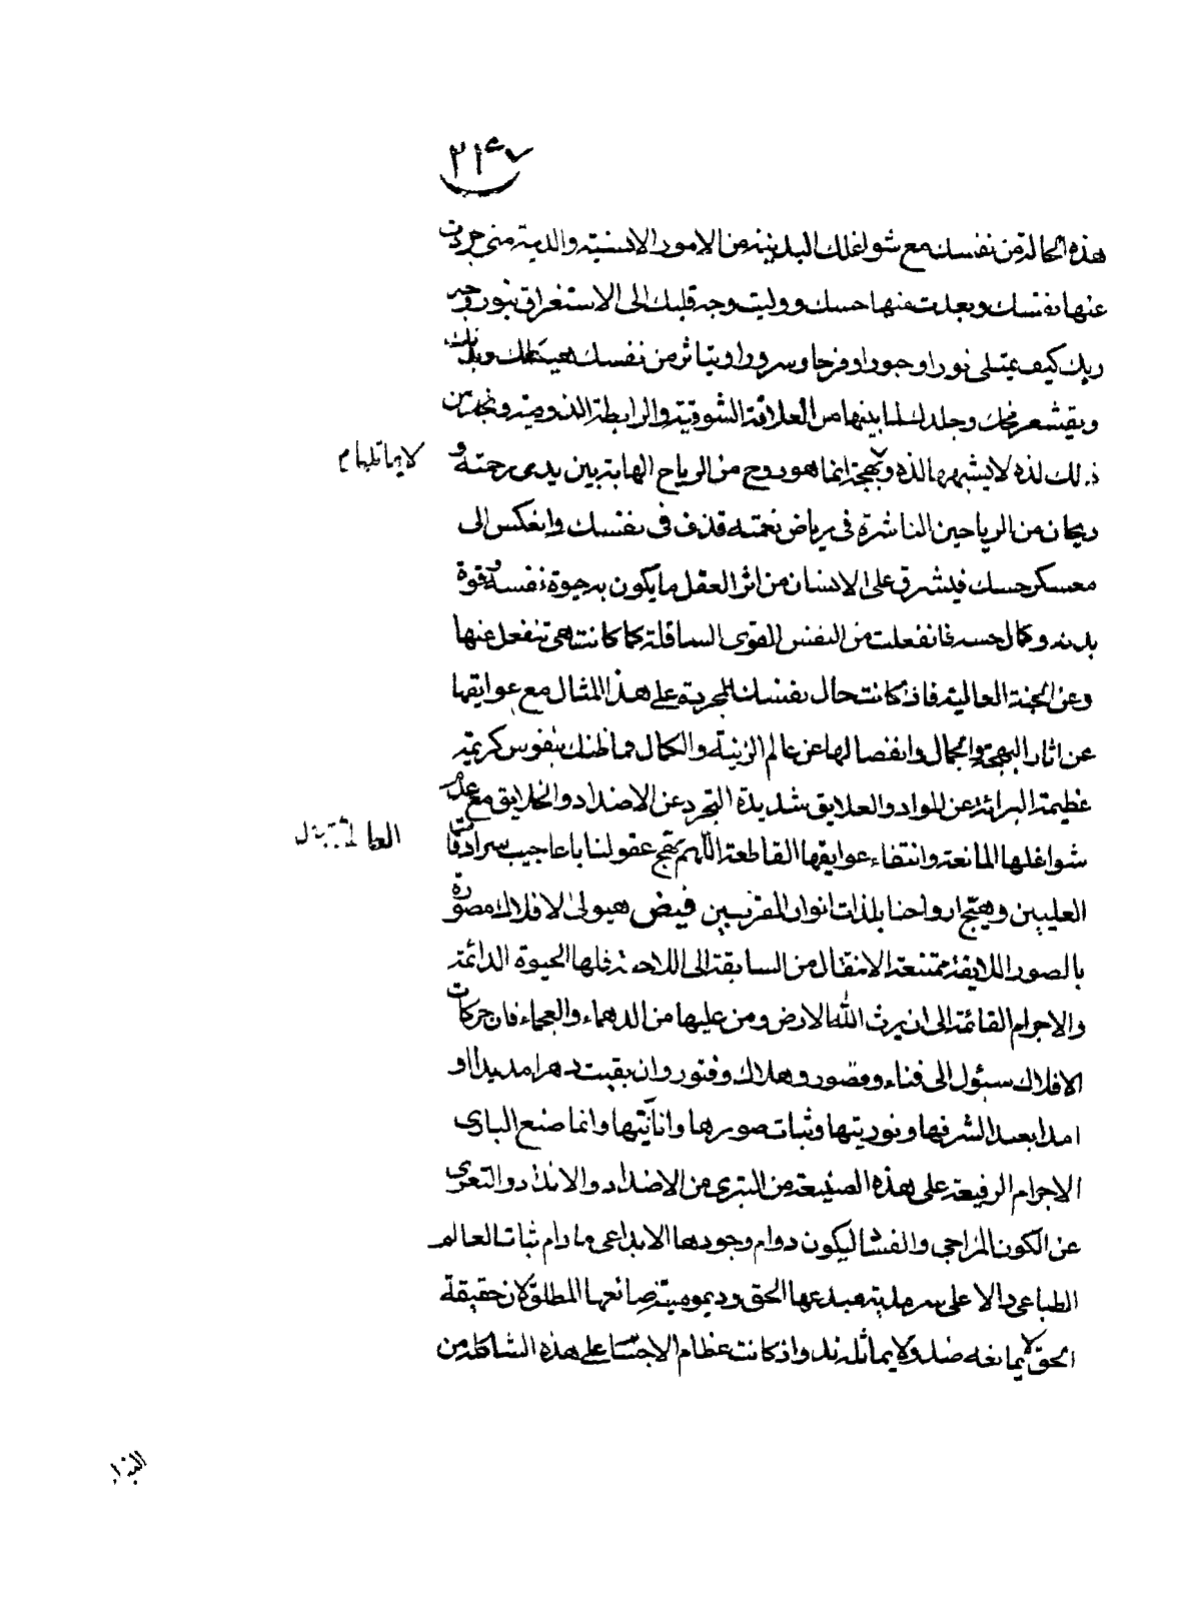 ٢١٤٧
هذه الحالة من نفسك مع شواغلك البدنية من الامور الانسية والدنية متى جردت
عنها نفسك وبعدت عنها حسك ووليت وجه قلبك الى الاستغراق بنور وجه
ربك كيف يمتلى نورا وحبورا وفرحا وسرورا ويتاثر من نفسك هيكلك وبدنك
ويقشعر مخك وجلدك لما بينهما من العلاقة الشوقية والرابطة الذوقية وتجد من
ذلك لذة لا يشبهها لذة وبهجة لايماثلها بهجة انما هو روح من الرياح الهابة بين يدى رحمته و
ريحان من الرياحين الناشرة فى رياض نعمته قذف فى نفسك وانعكس الى
معسكر حسك فيشرق على الانسان من اثر العقل ما يكون به حيوة نفسه وقوة
بدنه وكمال حسه فانفعلت من النفس القوى السافلة كما كانت هى تنفعل عنها
وعن الجنة العالية فاذا كانت حال نفسك المجردة على هذا المثال مع عوايقها
عن اثار البهجة والجمال وانفصالها عن عالم الزينة والكمال فما ظنك بنفوس كريمة
عظيمة البرائة عن المواد والعلايق شديدة التجرد عن الاضداد والخلايق مع عدم
شواغلها المانعة وانتفاء عوايقها القاطعة اللهم بهج عقولنا باعاجيب سرادقات
العليين وهيج ارواحنا بلذات انوار المقربين فيض هيولى الافلاك مصورة
بالصور اللايقة ممتنعة الانتقال من السابقة الى اللاحقة فلها الحيوة الدائمة
والاجرام القائمة الى ان يرث الله الارض ومن عليها من الدهماء والعجماء فان حركات
الافلاك سيئول الى فناء وقصور وهلاك وفتور وان بقيت دهرا مديدا او
امدا بعيدا لشرفها ونوريتها وثبات صورها وانائيتها وانما صنع البارى
الاجرام الرفيعة على هذه الصنيعة من التبرى من الاضداد والانداد والتعرى
عن الكون المزاجى والفساد ليكون دوام وجودها الابداعى ما دام ثبات العالم
الطباعى دالا على سرمدية مبدعها الحق وديمومية صانعها المطلق لان حقيقة
الحق لا يمانعه ضد ولا يماثله ند واذ كانت عظام الاجسام على هذه الشاكلة من